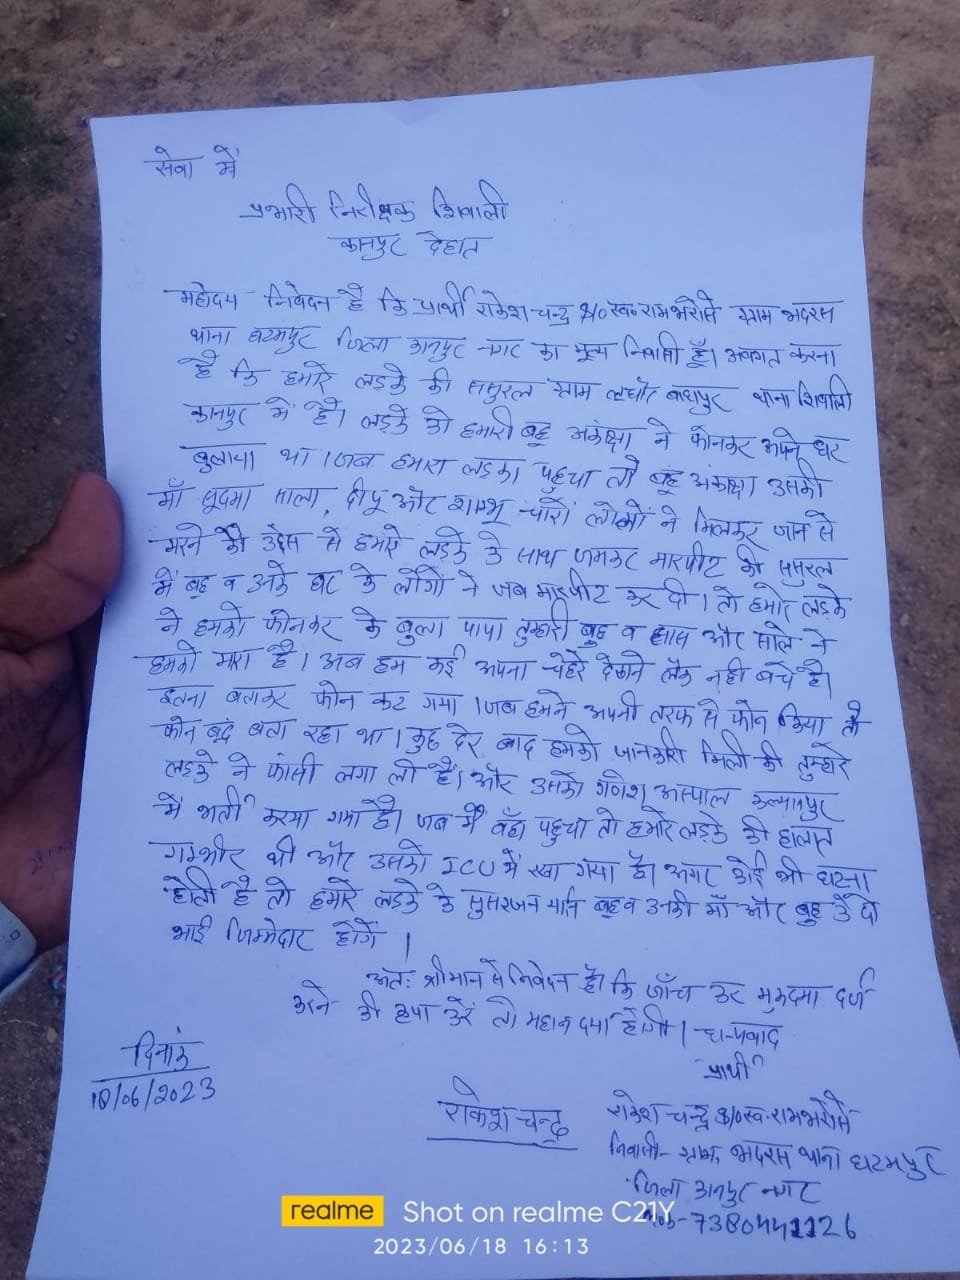 सेवा में
प्रभारी निरीक्षक शिवाली
कानपुर देहात
महोदय निवेदन है कि प्रार्थी राकेश चन्द्र S/० स्व० रामभरोसे ग्राम भदरस
थाना घटमपुर जिला कानपुर नगर का मूल निवासी हूँ। अवगत करना
है कि हमारे लड़के की ससुरल ग्राम बाघपुर थाना शिवाली
कानपुर में है। लड़के को हमारी बहू अकंक्षा ने फोनकर अपने घर
बुलाया था। जब हमारा लड़का पहुचा तो बहू अंकाक्षा उसकी
माँ साला, दीपू और शम्भू चारों लोगों ने मिलकर जान से
मरने के उद्देस से हमारे लड़के के साथ जमकर मारपीट की ससुरल
में बहू व उनके घर के लोगों ने जब मारपीट कर दी। तो हमारे लड़के
ने हमको फोनकर के बुला पापा तुम्हारी बहू व सास और साले ने
हमको मारा है। अब हम कई अपना चेहरे देखाने लैक नही बचे है।
इतना बताकर फोन कट गया। जब हमने अपनी तरफ से फोन किया तो
फोन बंद बता रहा था। कुछ देर बाद हमको जानकारी मिली की तुम्हारे
लड़के ने फांसी लगा ली है। और उसको गणेश अस्पाल कल्यानपुर
में भर्ती कराया गया है। जब मैं वहाँ पहुचा तो हमारे लड़के की हालत
गम्भीर थी और उसको ICU में रखा गया है। अगर कोई भी घटना
होती है तो हमारे लड़के के ससुरजन यानि बहू व उनकी माँ और बहू के दो
भाई जिम्मेदार होंगें।
अतः श्रीमान से निवेदन है कि जाँच कर मुकदमा दर्ज
करने की कृपा करें तो महान दया होगी। धन्यवाद
प्रार्थी
दिनांक
18/06/2023
राकेश चन्द्र
राकेश चन्द्र S/० स्व. रामभरोसे
निवासी- ग्राम, भदरस थाना घटमपुर
जिला कानपुर नगर
मो०-7380441126
realme Shot on realme C21Y
2023/06/18 16:13